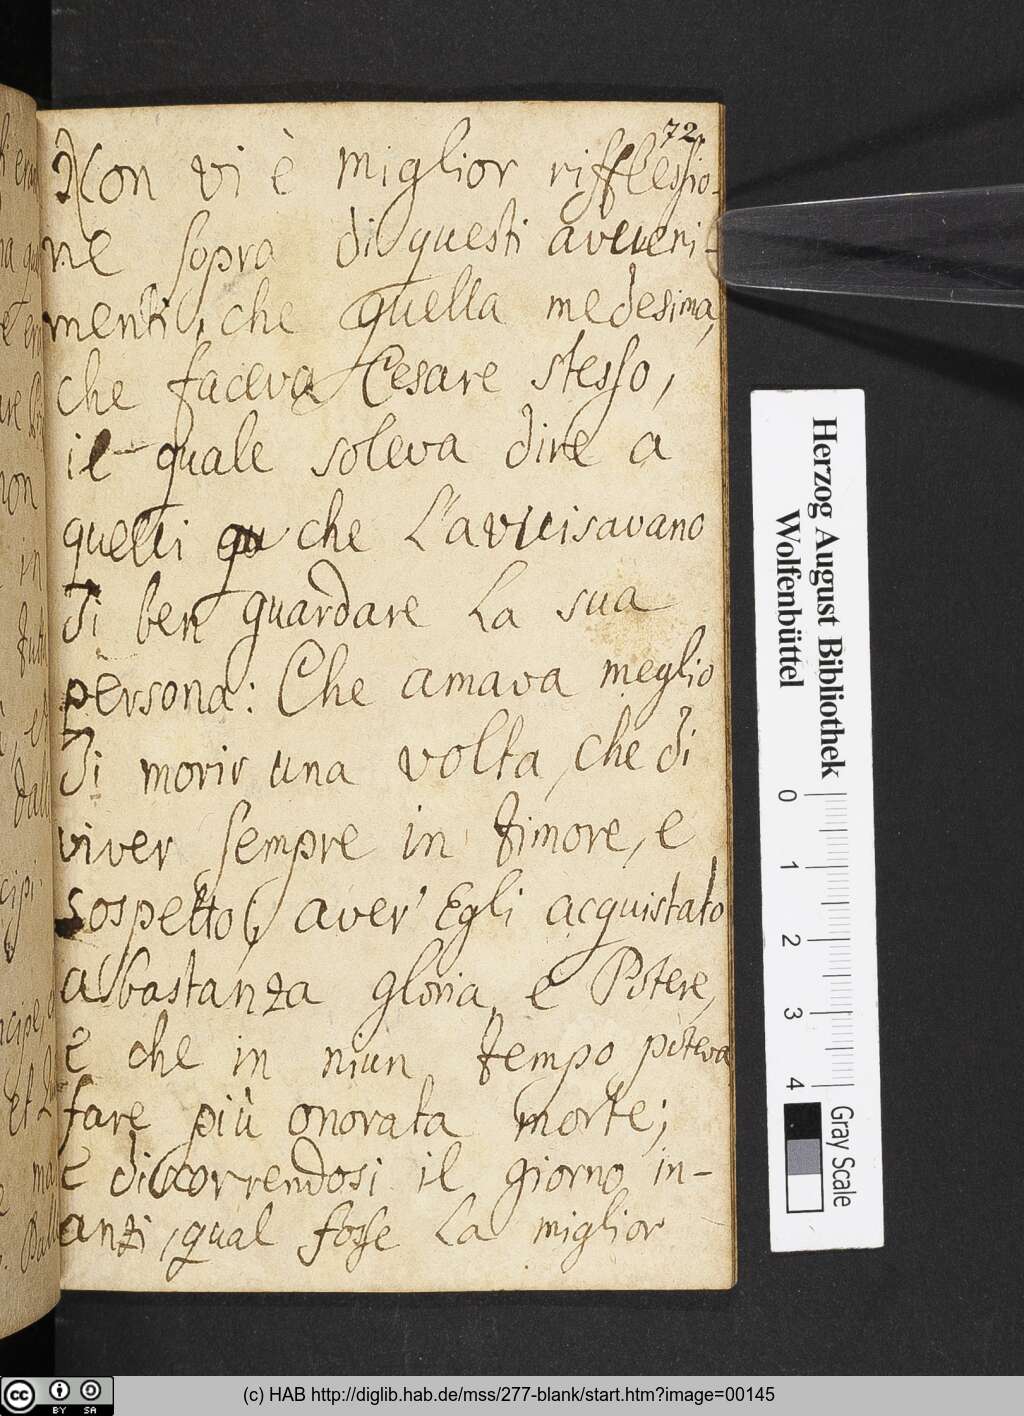 72
Non vi è miglior rifflessio-
ne sopra di questi avveni-
menti, che quella medesima,
che faceva Cesare stesso,
il quale soleva dire a
quelli che l'avvisavano
di ben guardare la sua
persona: Che amava meglio
di morir una volta, che di
viver sempre in timore, e
sospetto, aver' Egli acquistato
abbastanza gloria e Potere,
e che in niun tempo poteva
fare più onorata morte;
e discorrendosi il giorno in-
anzi, qual fosse la miglior
Herzog August Bibliothek
Wolfenbüttel
0 1 2 3 4
Gray Scale
cc BY SA
(c) HAB http://diglib.hab.de/mss/277-blank/start.htm?image=00145